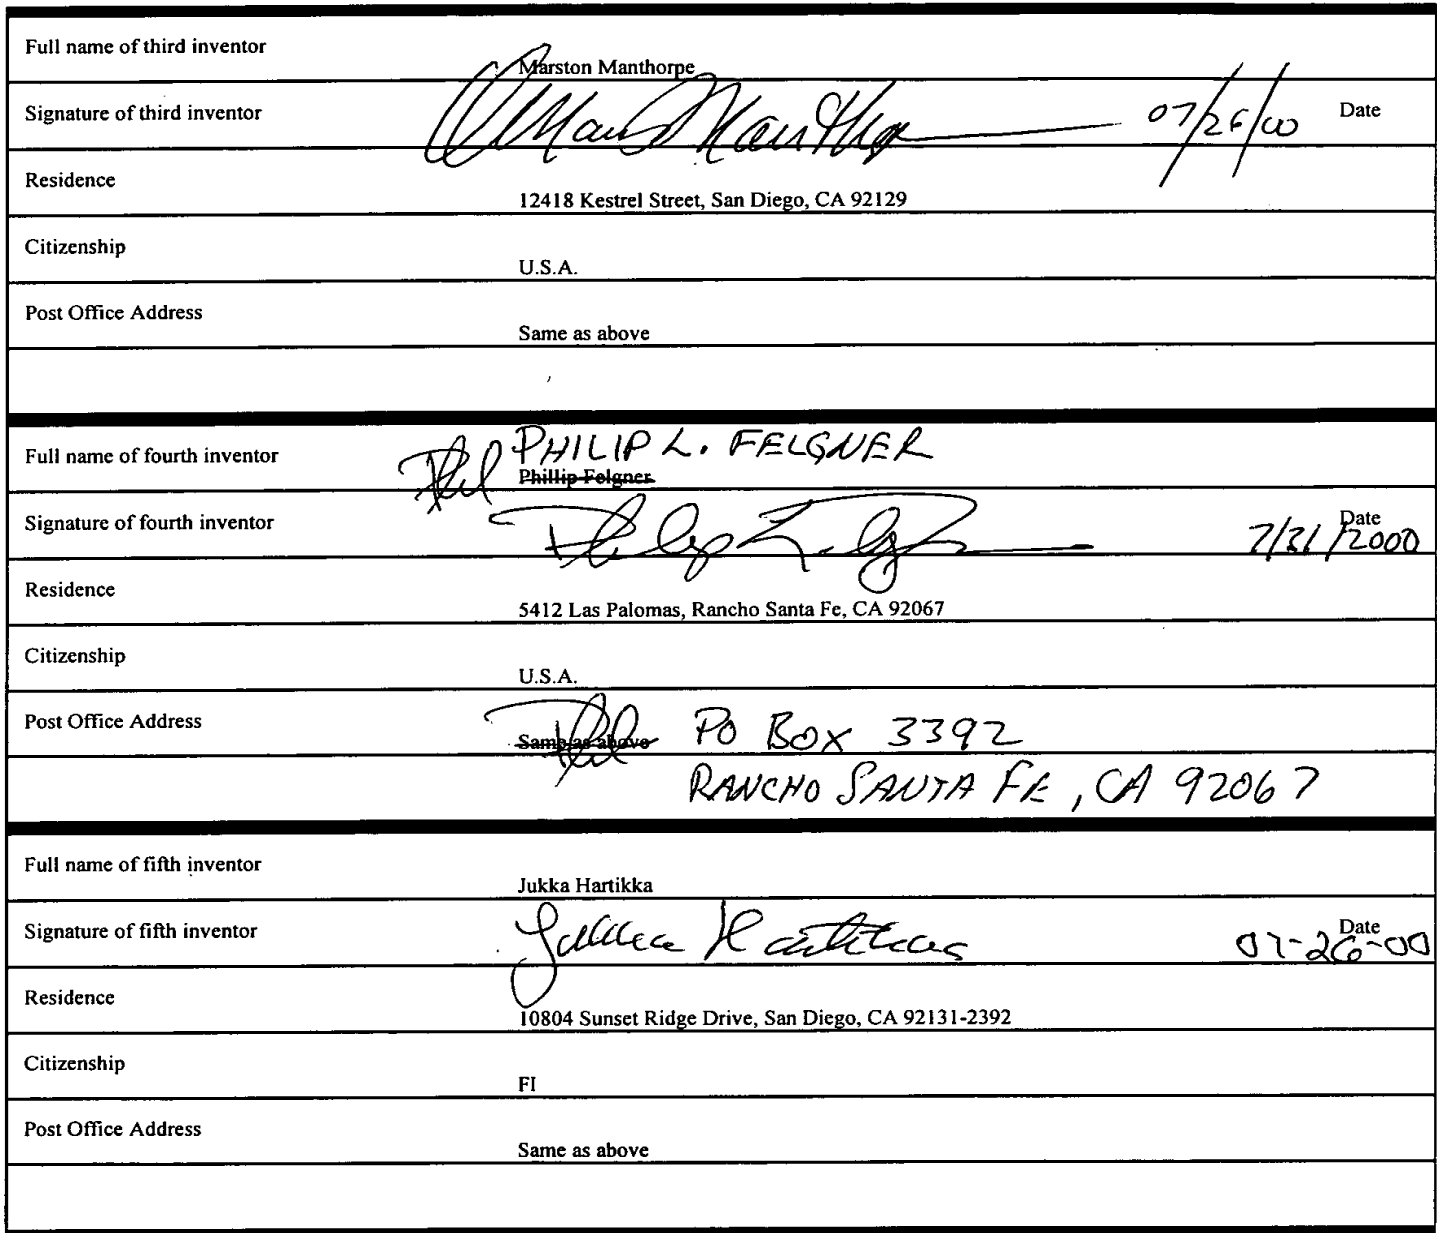 Full name of third inventor
Marston Manthorpe
Signature of third inventor 07/26/00 Date
Residence
12418 Kestrel Street, San Diego, CA 92129
Citizenship
U.S.A.
Post Office Address
Same as above
PHILIP L. FELGNER
Full name of fourth inventor Phil
Phillip Felgner
Signature of fourth inventor Philip Felgner Date
7/31/2000
Residence
5412 Las Palomas, Rancho Santa Fe, CA 92067
Citizenship
U.S.A.
Post Office Address
Same as above Phil PO BOX 3392
RANCHO SANTA FE, CA 92067
Full name of fifth inventor
Jukka Hartikka
Signature of fifth inventor Jukka Hartikka Date
07-26-00
Residence
10804 Sunset Ridge Drive, San Diego, CA 92131-2392
Citizenship
FI
Post Office Address
Same as above